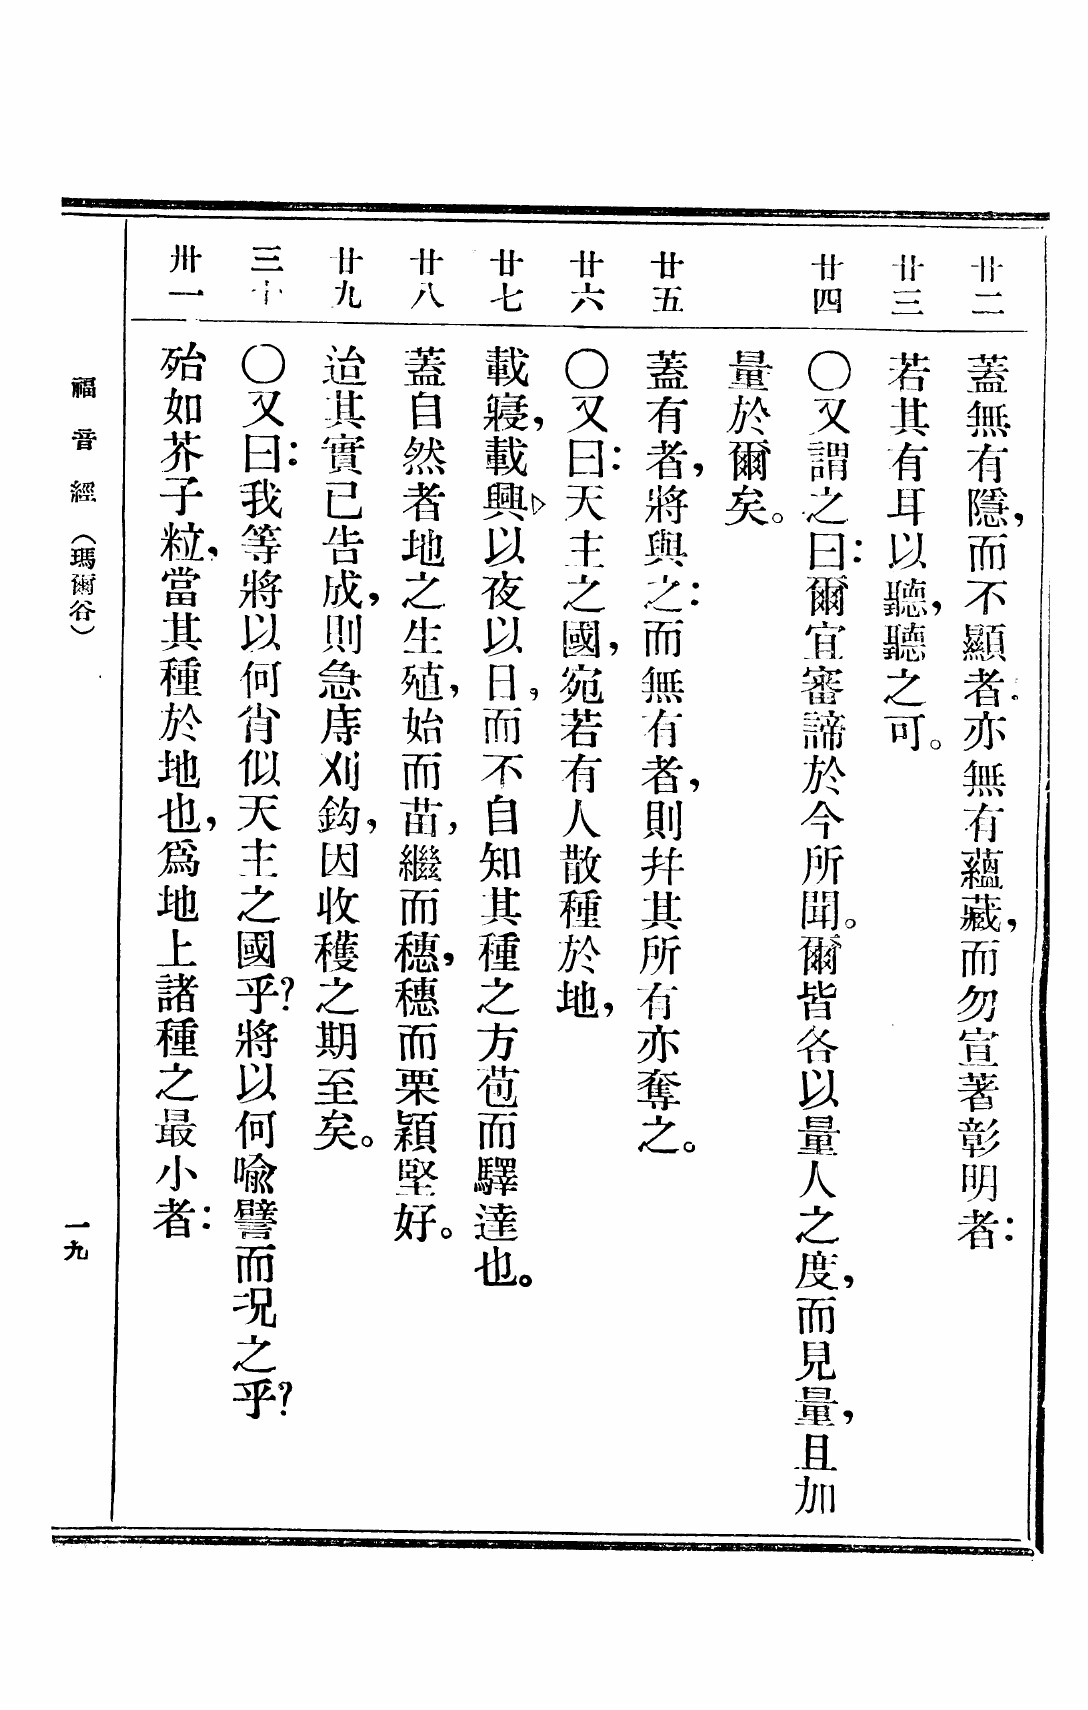 廿二 蓋無有隱，而不顯者。亦無有蘊藏，而勿宣著彰明者：
廿三 若其有耳以聽，聽之可。
廿四 〇又謂之曰：爾宜審諦於今所聞。爾皆各以量人之度，而見量，且加
量於爾矣。
廿五 蓋有者，將與之：而無有者，則拌其所有亦奪之。
廿六 〇又曰：天主之國，宛若有人散種於地，
廿七 載寢，載興，以夜以日，而不自知其種之方苞而驛達也。
廿八 蓋自然者地之生殖，始而苗，繼而穗，穗而栗穎堅好。
廿九 迨其實已告成，則急庤刈鈎，因收穫之期至矣。
三十 〇又曰：我等將以何肖似天主之國乎？將以何喩譬而况之乎？
卅一 殆如芥子粒，當其種於地也，爲地上諸種之最小者：
福音經（瑪爾谷）
一九